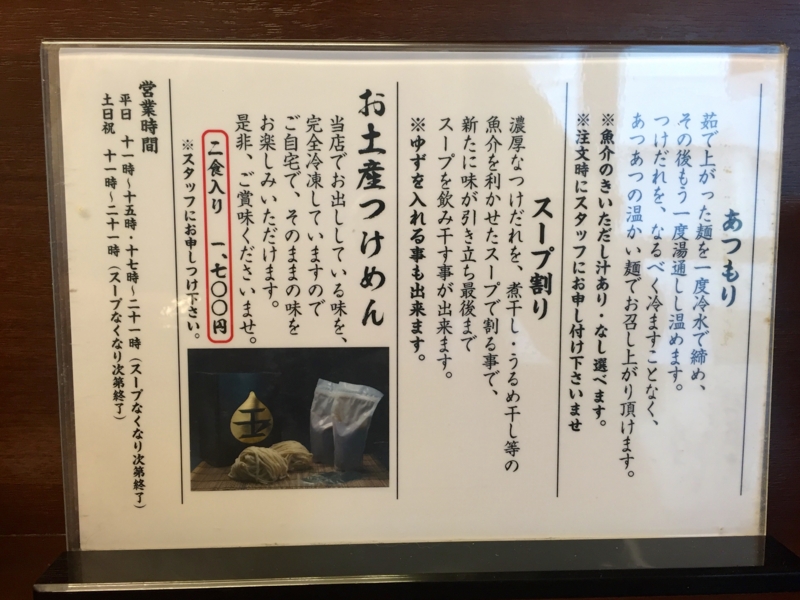 あつもり
茹で上がった麺を一度冷水で締め、
その後もう一度湯通しし温めます。
つけだれを、なるべく冷ますことなく、
あつあつの温かい麺でお召し上がり頂けます。
※魚介のきいただし汁あり・なし選べます。
※注文時にスタッフにお申し付け下さいませ
スープ割り
濃厚なつけだれを、煮干し・うるめ干し等の
魚介を利かせたスープで割る事で、
新たに味が引き立ち最後まで
スープを飲み干す事が出来ます。
※ゆずを入れる事も出来ます。
お土産つけめん
当店でお出ししている味を、
完全冷凍していますので
ご自宅で、そのままの味を
お楽しみいただけます。
是非、ご賞味くださいませ。
二食入り 一、七〇〇円
※スタッフにお申しつけ下さい。
王
営業時間
平日 十一時～十五時・十七時～二十一時（スープなくなり次第終了）
土日祝 十一時～二十一時（スープなくなり次第終了）